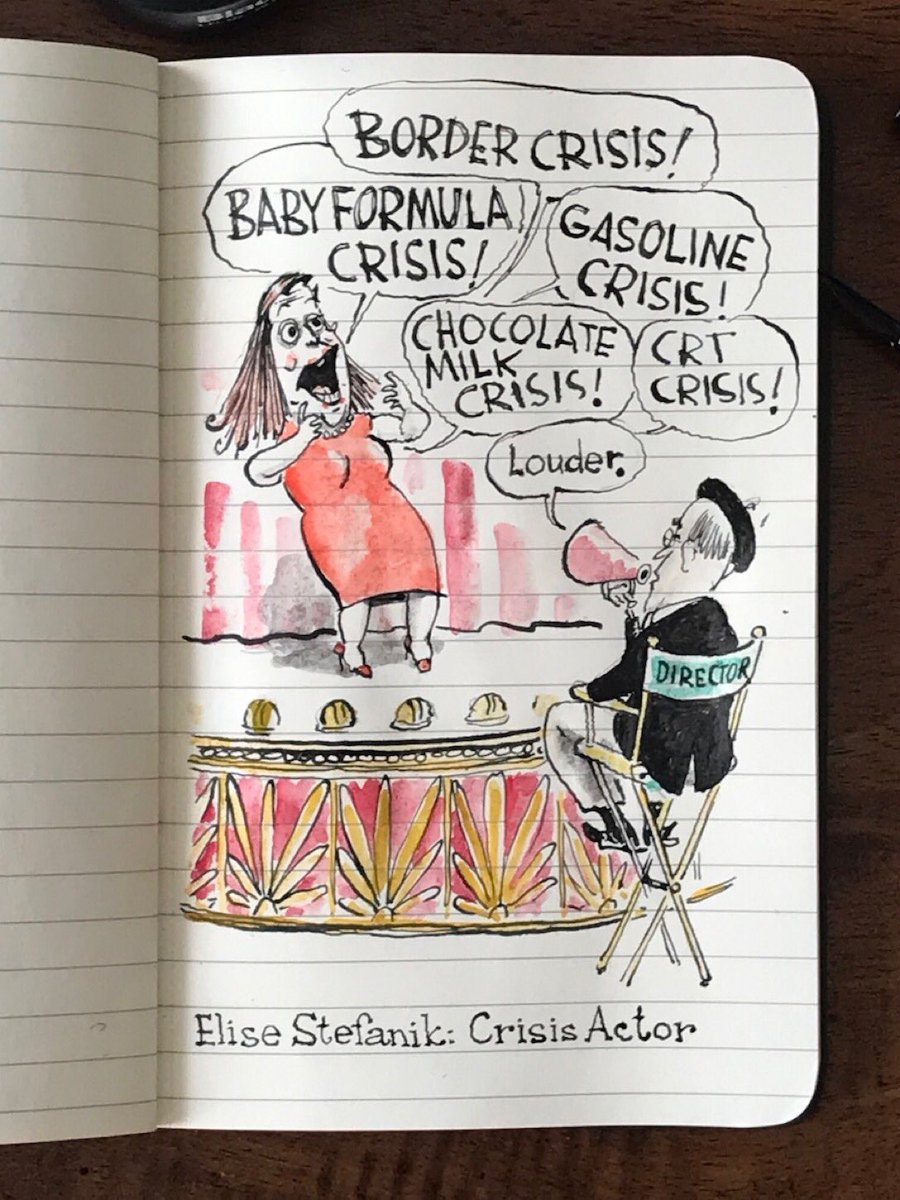 BORDER CRISIS!
BABY FORMULA
CRISIS!
GASOLINE
CRISIS!
CHOCOLATE
MILK
CRISIS!
CRT
CRISIS!
Louder.
DIRECTOR
Elise Stefanik: Crisis Actor